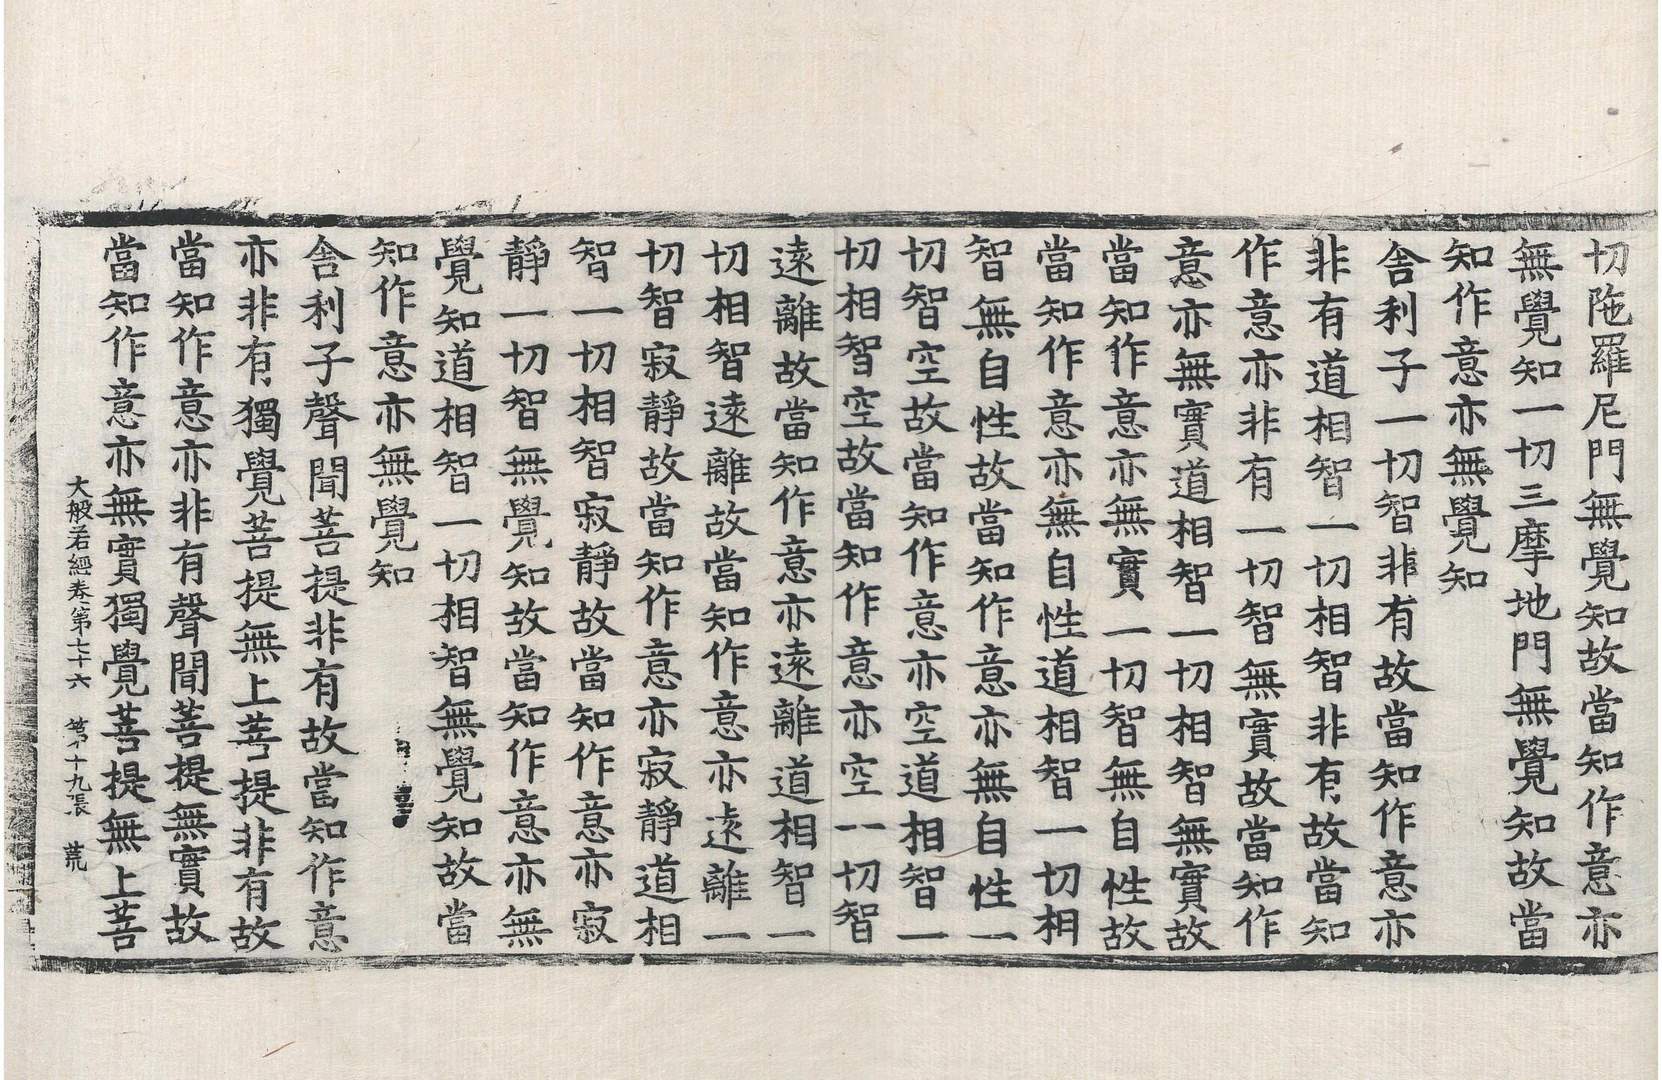 切陁羅尼門無覺知故當知作意亦
無覺知一切三摩地門無覺知故當
知作意亦無覺知
舎利子一切智非有故當知作意亦
非有道相智一切相智非有故當知
作意亦非有一切智無實故當知作
意亦無實道相智一切相智無實故
當知作意亦無實一切智無自性故
當知作意亦無自性道相智一切相
智無自性故當知作意亦無自性一
切智空故當知作意亦空道相智一
切相智空故當知作意亦空一切智
遠離故當知作意亦遠離道相智一
切相智遠離故當知作意亦遠離一
切智寂靜故當知作意亦寂靜道相
智一切相智寂靜故當知作意亦寂
靜一切智無覺知故當知作意亦無
覺知道相智一切相智無覺知故當
知作意亦無覺知
舎利子聲聞菩提非有故當知作意
亦非有獨覺菩提無上菩提非有故
當知作意亦非有聲聞菩提無實故
當知作意亦無實獨覺菩提無上菩
大般若經卷第七十六 第十九張 荒